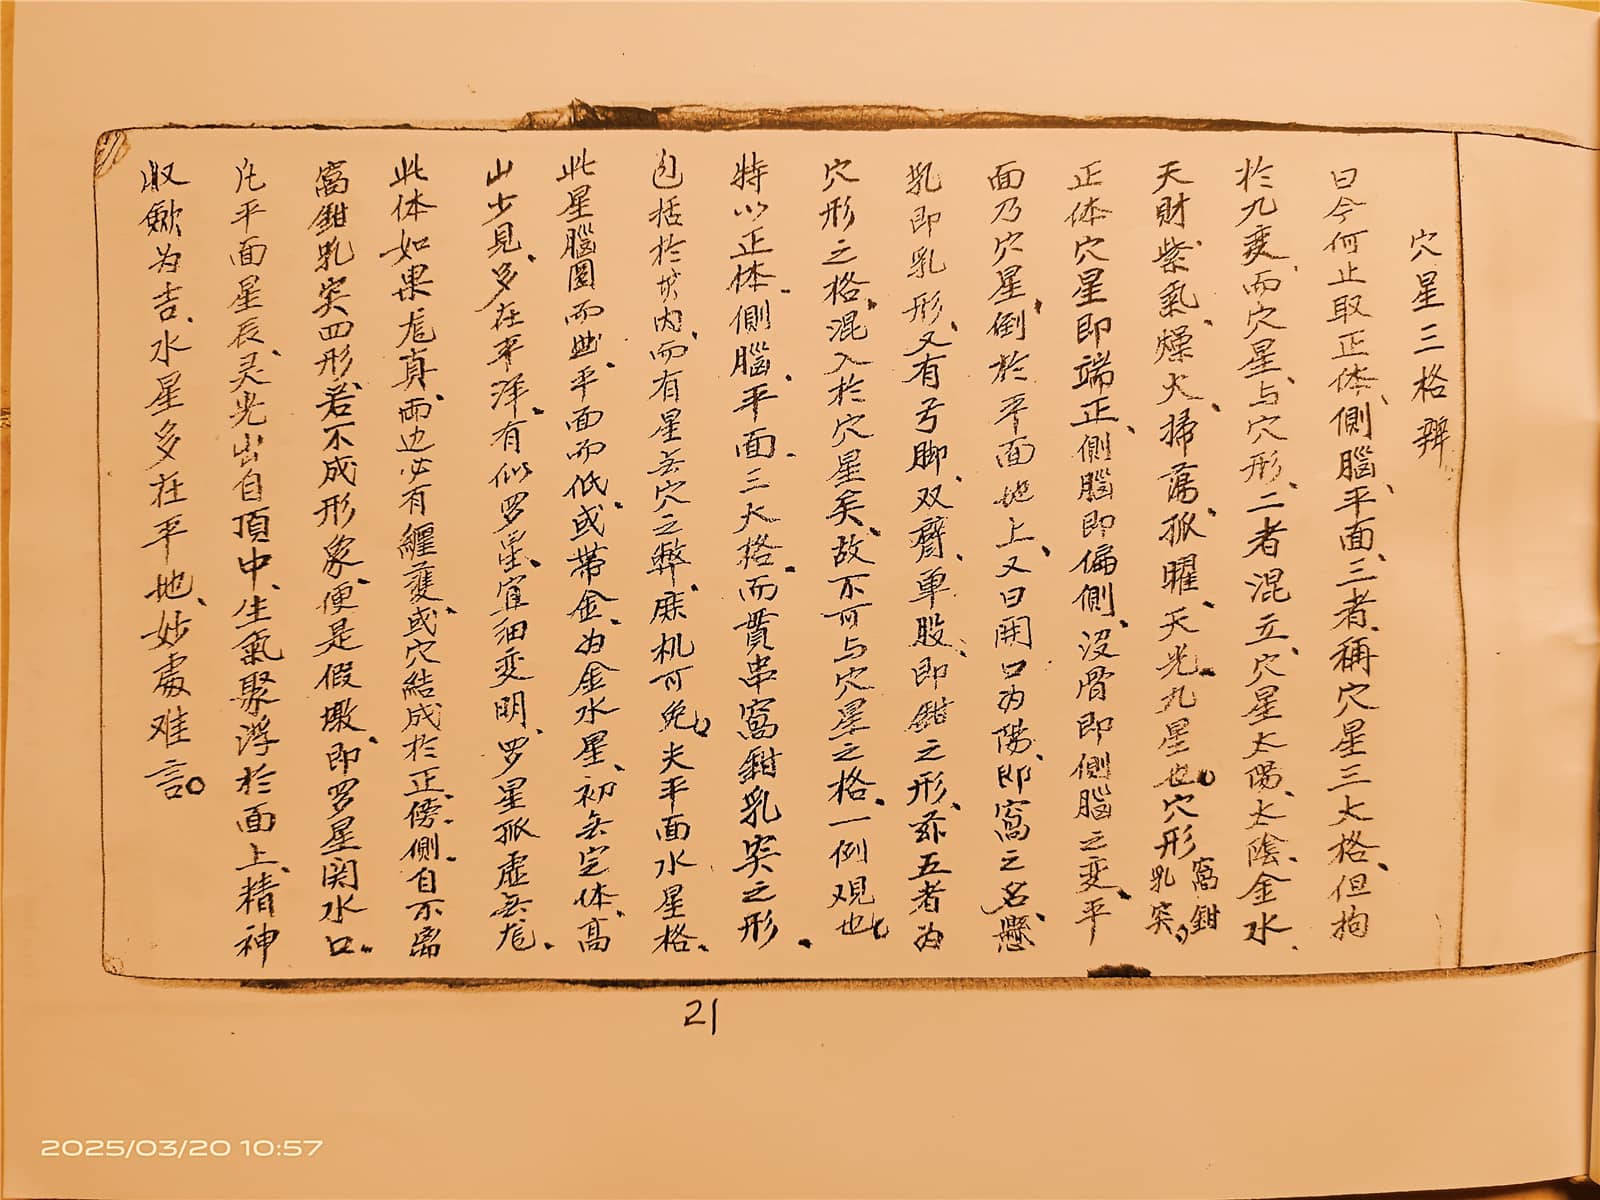 穴星三格辨
曰今何止取正体、側腦、平面、三者、稱穴星三大格、但拘
於九变、而穴星、与穴形、二者混立、穴星太陽、太陰、金水、
天財、紫氣、燥火、掃蕩、孤曜、天光、九星也、穴形窩鉗乳突、
正体穴星即端正、側腦即偏側、没骨即側腦之变、平
面乃穴星、倒於平面地上、又曰開口为陽、即窩之名、懸
乳即乳形、又有弓脚、双臂、单股、即鉗之形、茲五者为
穴形之格、混入於穴星矣、故不可与穴星之格、一例观也、
特以正体、側腦、平面、三大格、而貫串窩鉗乳突之形、
包括於内、而有星无穴之弊、庶机可免、夫平面水星格、
此星腦圓而、平面而低、或帶金、为金水星、初无定体、高
山少見、多在平洋、有似罗星、宜細变明、罗星孤虛无尨、
此体如果尨真、而边必有纏護、或穴結成於正、傍、側、自不离
窩鉗乳突四形、若不成形象、便是假墩、即罗星関水口、
凡平面星辰、灵光出自頂中、生氣聚浮於面上、精神
收歛为吉、水星多在平地、妙處难言。
21
2025/03/20 10:57